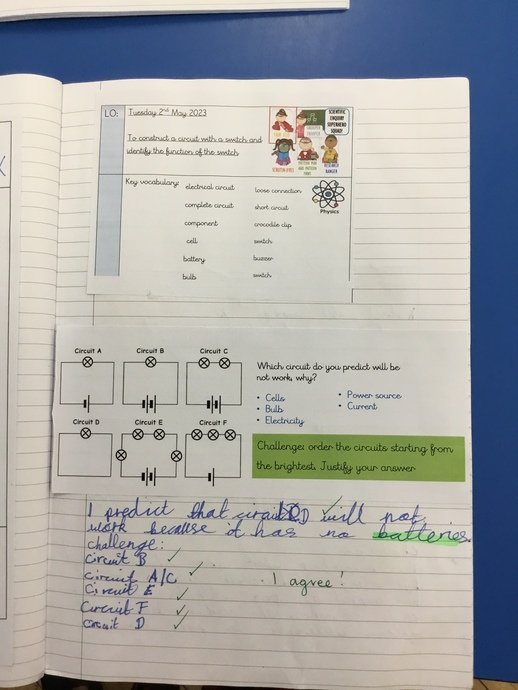 LO:
Tuesday 2nd May 2023
To construct a circuit with a switch and
identify the function of the switch
SCIENTIFIC
ENQUIRY
SUPERHERO
SQUAD!
SCRUTINI-EYES
RESEARCH
RANGER
Key vocabulary:
electrical circuit
loose connection
complete circuit
short circuit
component
crocodile clip
cell
switch
battery
buzzer
bulb
switch
Physics
Circuit A
Circuit B
Circuit C
Circuit D
Circuit E
Circuit F
Which circuit do you predict will be
not work, why?
• Cells
• Bulb
• Electricity
• Power source
• Current
Challenge: order the circuits starting from
the brightest. Justify your answer
I predict that D will not
work because it has no batteries.
challenge:
Circuit B
Circuit A/C
Circuit E
Circuit F
Circuit D
I agree!